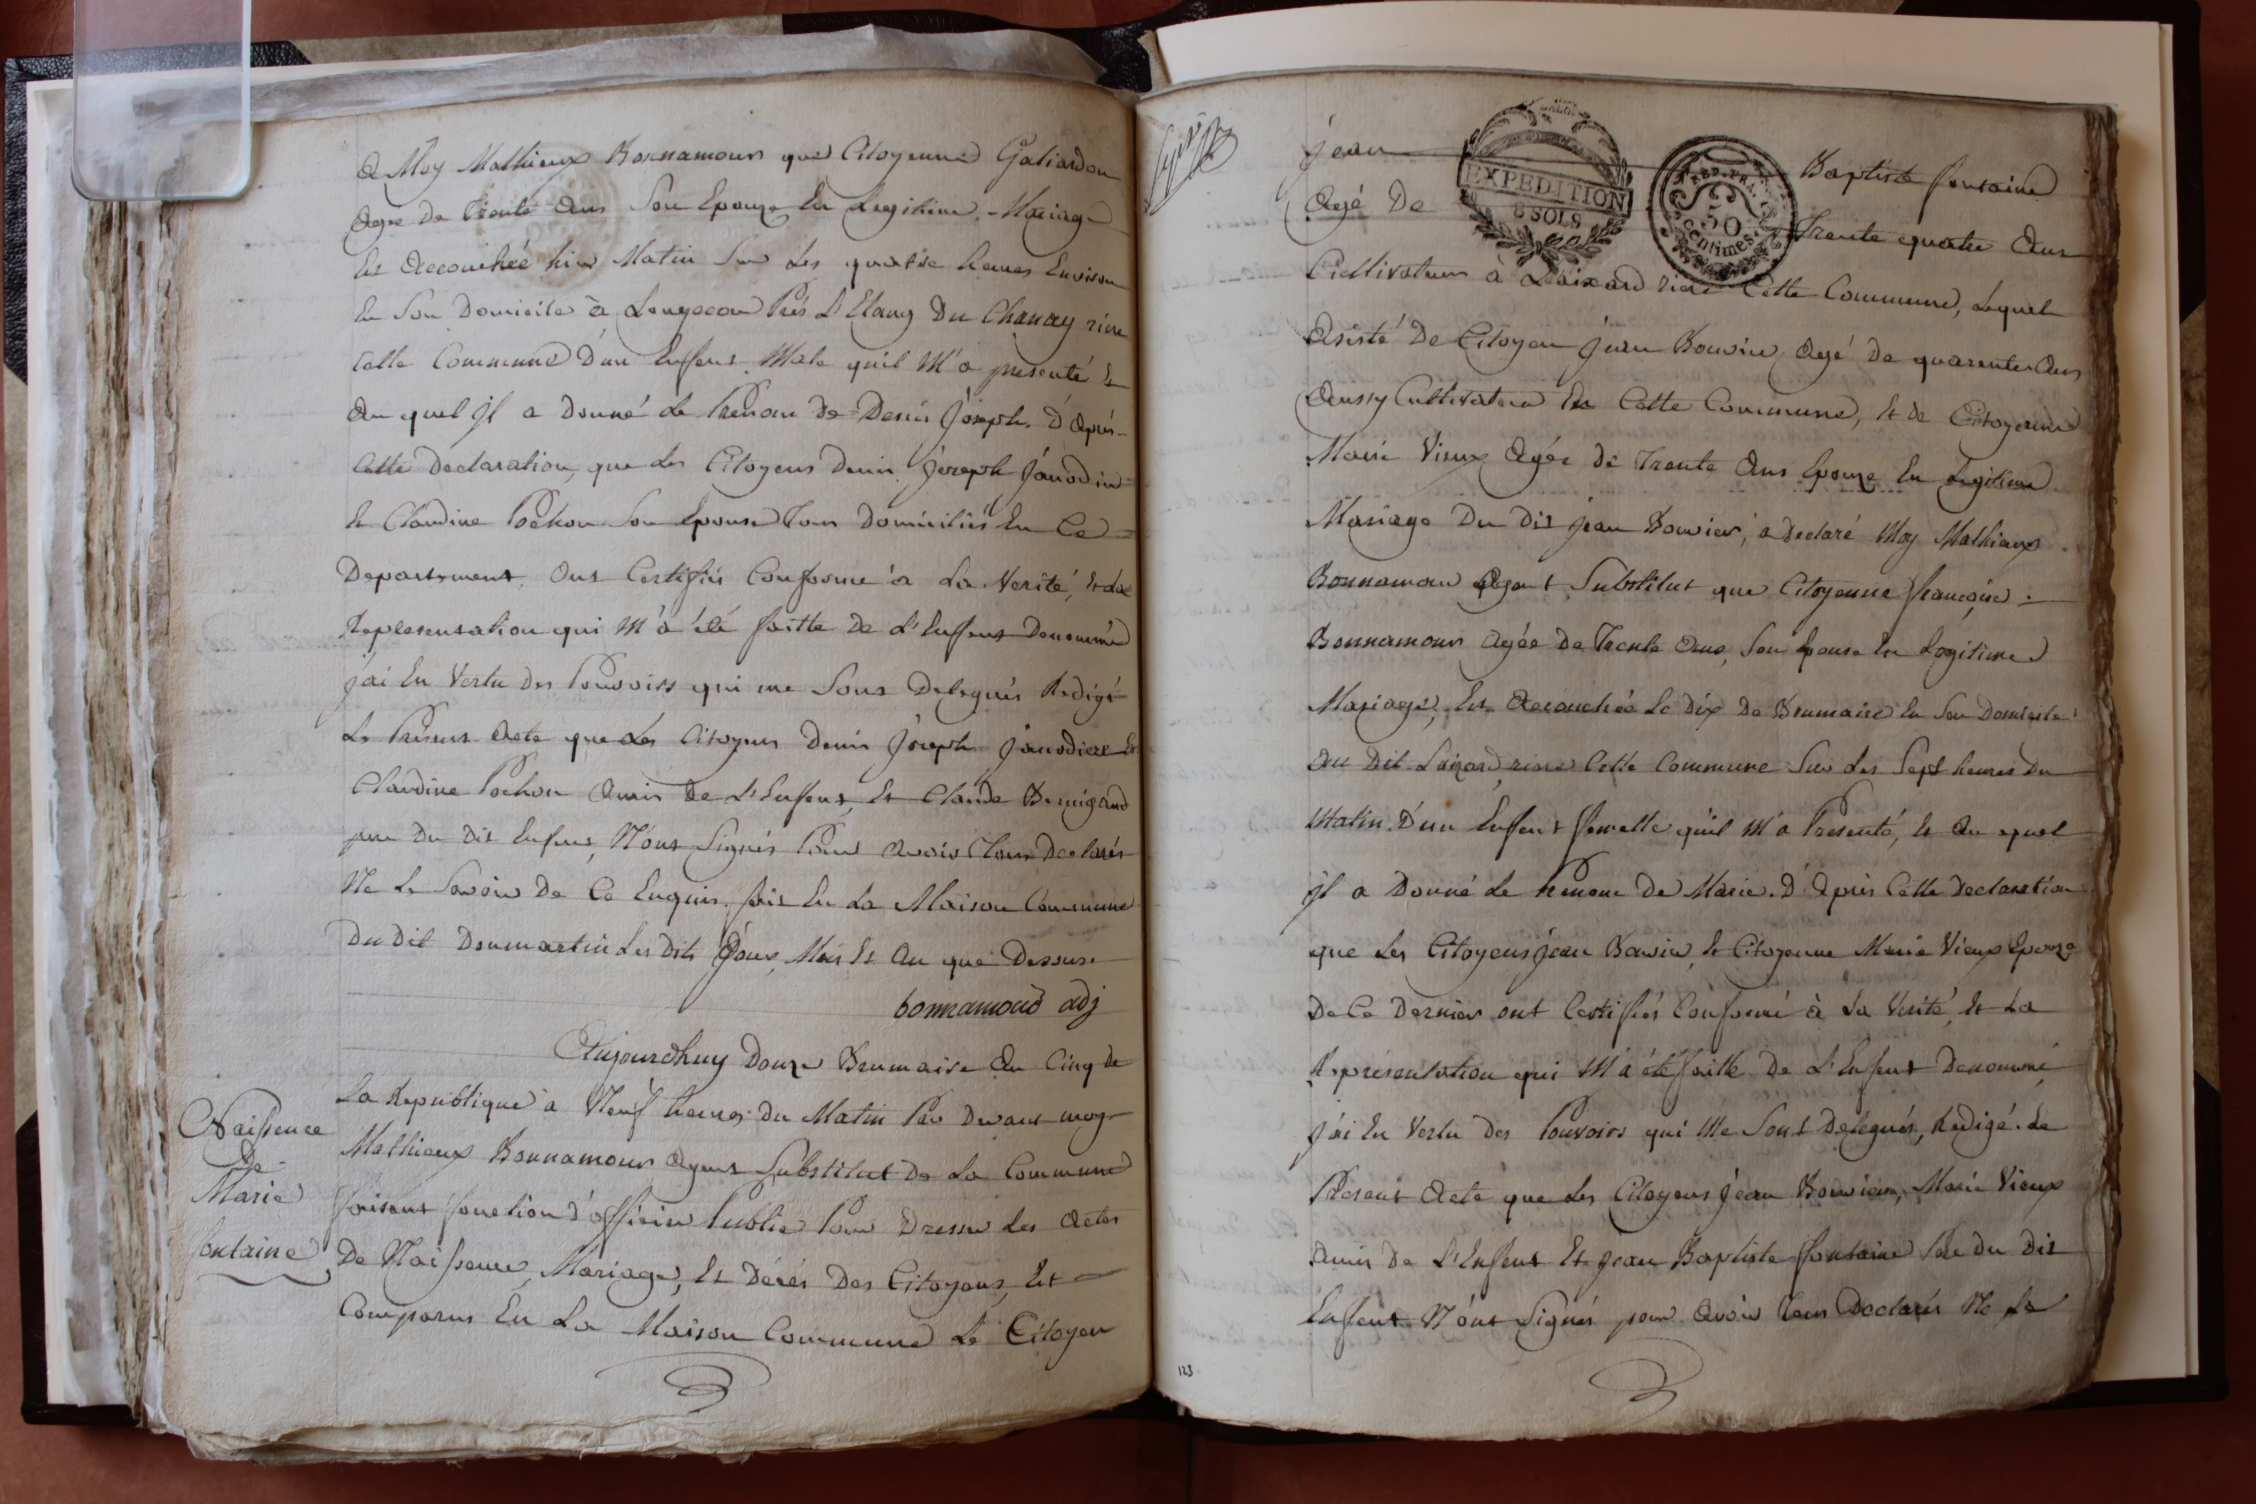 a Moy Mathieux Bonnamour que Citoyenne Galiardon
agée de Trente ans Son Epouze En Legitime Mariage
Est accouchée hier Matin Sur Les quatre heures Environ
En Son Domicile à Longecou Près L'Etang Du Chanay riere
Cette Commune D'un Enfent Male qu'il M'a presenté Et
au quel Jl a Donné Le Prenom de Denis Joseph. D'après
Cette Declaration, que Les Citoyens Denis Joseph Janodin
Et Claudine Pochon Son Epouse Tous Domiciliés En Ce
Departement Ont Certifiés Conforme à La Verité, Et La
Representation qui M'a été faitte de L'Enfent Denommé
j'ai En Vertu des Pouvoirs qui me Sont Delegués Redigé
Le Present Acte que Les Citoyens Denis Joseph Et
Claudine Pochon amis de L'Enfent, Et Claude
pere Du Dit Enfent, N'ont Signés Pour avoir Tous Declarés
Ne Le Savoir De Ce Enquis. fait En La Maison Commune
Du Dit Dommartin Les Dits Jour, Mois Et An que Dessus.
bonnamour adj
Aujourdhuy Douze Brumaire An Cinq de
La Republique à Neuf heures Du Matin Par Devant moy
Mathieux Bonnamour Agent Substitut De La Commune
Naissence
de
Marie
fontaine
faisant fonction d'officier Public Pour Dresser Les Actes
De Naissence, Mariage, Et Décés Des Citoyens, Est
Comparus En La Maison Commune Le Citoyen
jean Baptiste fontaine
EXPEDITION
8 SOLS
REP. FRA.
50
centimes
Agé De Trente quatre Ans
Cultivateur à riere Cette Commune, Lequel
Assisté De Citoyen Jean Bouvier, Agé De quarente Ans
Aussy Cultivateur En Cette Commune, Et de Citoyenne
Marie Vieux Agée de Trente Ans Epouze En Legitime
Mariage Du Dit jean Bouvier, a Declaré Moy Mathieux
Bonnamour Agent Substitut que Citoyenne francoise
Bonnamour Agée De Trente Ans, Son Epouse En Legitime
Mariage, Est Accouchée Le Dix De Brumaire En Son Domicile
Au Dit riere Cette Commune Sur Les Sept heures Du
Matin. D'un Enfent femelle qu'il M'a Presenté, Et Au quel
jl a Donné Le Prenom De Marie. D'après Cette Declaration
que Les Citoyens Jean Bouvier, Et Citoyenne Marie Vieux Epouze
De Ce Dernier ont Certifiés Conforme à La Verité, Et La
Représentation qui M'a été faitte De L'Enfent Denommé
j'ai En Vertu Des Pouvoirs qui Me Sont Delegués, Redigé Le
Present Acte que Les Citoyens Jean Bouvier, Marie Vieux
amis De L'Enfent Et jean Baptiste fontaine Pere Du Dit
Enfent N'ont Signés pour Avoir Tous Declarés Ne Le
123